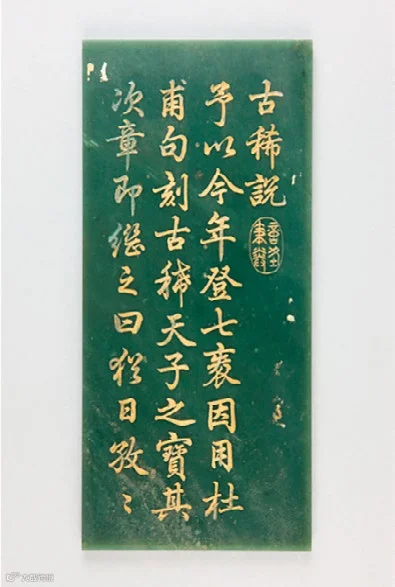 古稀說
予以今年登七袠因用杜
甫句刻古稀天子之寶其
次章即繼之曰猶日孜〻